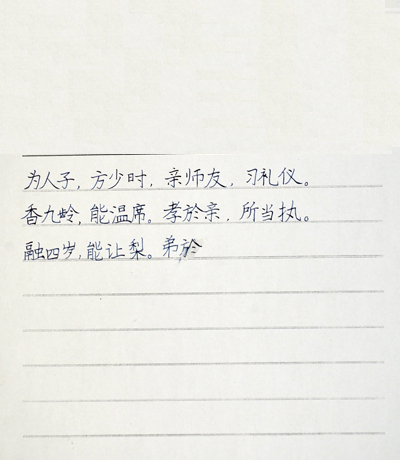 为人子，方少时，亲师友，习礼仪。
香九龄，能温席。孝於亲，所当执。
融四岁，能让梨。弟於